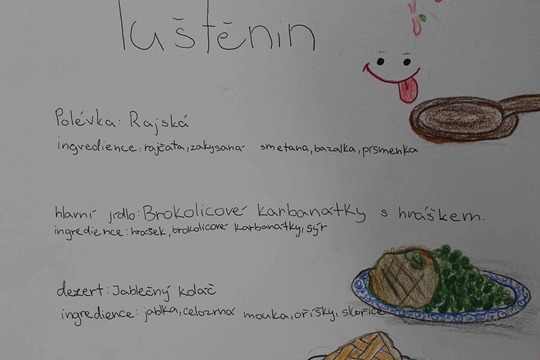 luštěnin
Polévka: Rajská
ingredience: rajčata, zakysaná smetana, bazalka, prsmenka
hlavní jídlo: Brokolicové karbanátky s hráškem.
ingredience: hrášek, brokolicové karbanátky, sýr
dezert: Jablečný koláč
ingredience: jablka, celozrnná mouka, oříšky, skořice